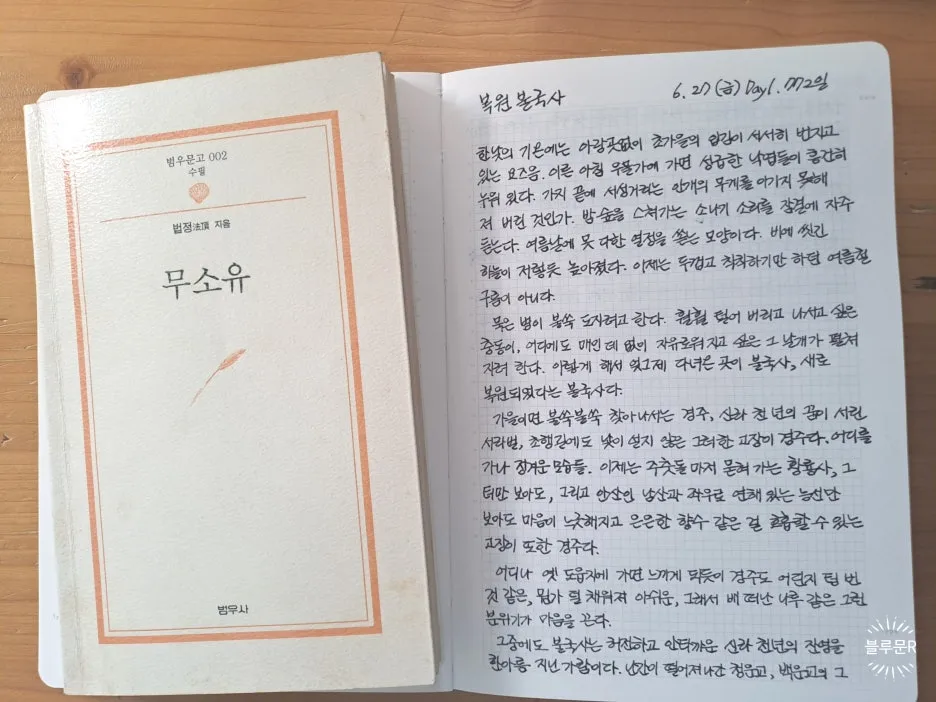 범우문고 002
수필
법정法頂 지음
무소유
범우사
복원 불국사
6. 27 (금) Day 1,772일
한낮의 기온에는 아랑곳없이 초가을의 입김이 서서히 번지고
있는 요즈음. 이른 아침 우물가에 가면 성급한 낙엽들이 흥건히
누워 있다. 가지 끝에 서성거리는 안개의 무게를 이기지 못해
져 버린 것인가. 밤 숲을 스쳐가는 소나기 소리를 잠결에 자주
듣는다. 여름날에 못 다한 열정을 쏟는 모양이다. 비에 씻긴
하늘이 저렇듯 높아졌다. 이제는 두껍고 칙칙하기만 하던 여름철
구름이 아니다.
묵은 병이 불쑥 도지려고 한다. 훨훨 털어 버리고 나서고 싶은
충동이, 어디에도 매인 데 없이 자유로워지고 싶은 그 날개가 펼쳐
지려 한다. 이렇게 해서 엊그제 다녀온 곳이 불국사, 새로
복원되었다는 불국사다.
가을이면 불쑥불쑥 찾아나서는 경주, 신라 천 년의 꿈이 서린
서라벌, 초행길에도 낯이 설지 않은 그러한 고장이 경주다. 어디를
가나 정겨운 모습들. 이제는 주춧돌마저 묻혀 가는 황룡사, 그
터만 보아도, 그리고 안산인 남산과 좌우로 연해 있는 능선만
보아도 마음이 느긋해지고 은은한 향수 같은 걸 호흡할 수 있는
고장이 또한 경주다.
어디나 옛 도읍지에 가면 느끼게 되듯이 경주도 어딘지 텅 빈
것 같은, 뭔가 덜 채워져 아쉬운, 그래서 배 떠난 나루 같은 그런
분위기가 마음을 끈다.
그중에도 불국사는 허전하고 안타까운 신라 천년의 잔영을
한아름 지닌 가람이다. 난간이 떨어져나간 청운교, 백운교의 그
블루문R